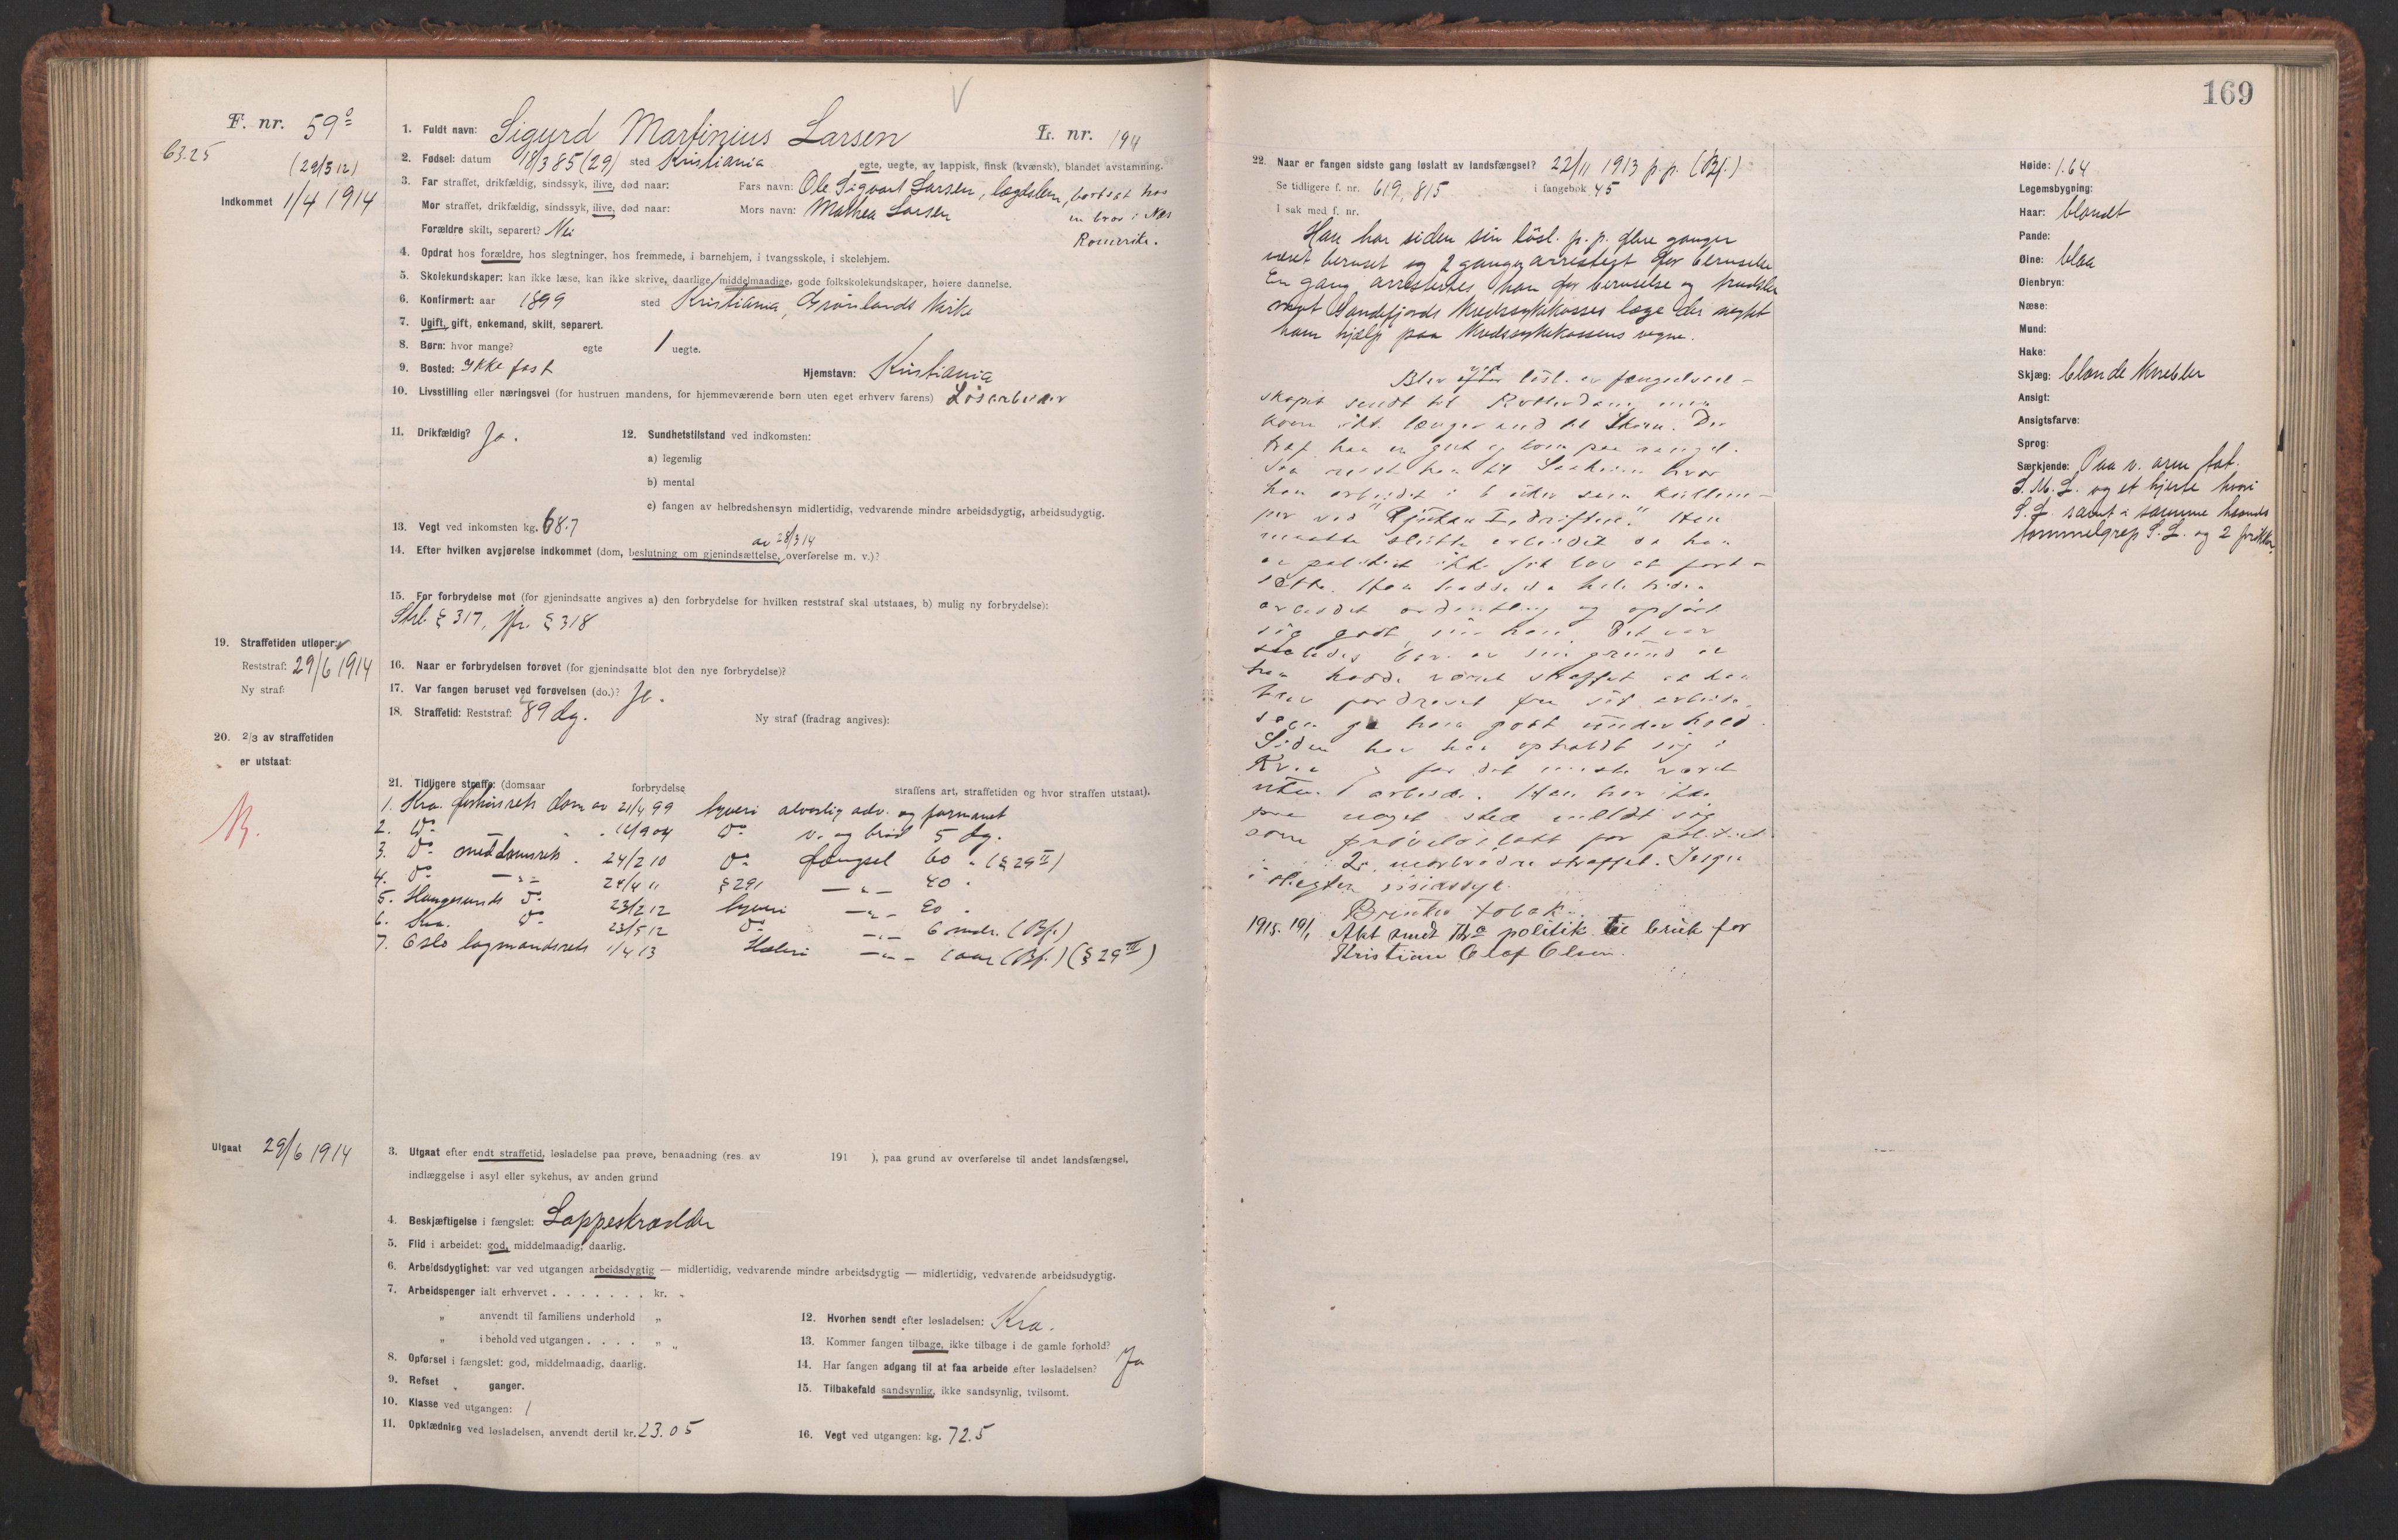 169
F. nr. 59
63.25
(29/3 12)
Indkommet 1/4 1914
1. Fuldt navn: Sigurd Martinius Larsen L. nr. 194
2. Fødsel: datum 18/3 85 (29) sted Kristiania egte, uegte, av lappisk, finsk (kvænsk), blandet avstamning.
3. Far straffet, drikfældig, sindssyk, ilive, død naar: Fars navn: Ole Sigvart Larsen, lægdslem, bortsat hos
Mor straffet, drikfældig, sindssyk, ilive, død naar: Mors navn: Mathea Larsen en bror i Nes
Forældre skilt, separert? Nei Romerike.
4. Opdrat hos forældre, hos slegtninger, hos fremmede, i barnehjem, i tvangsskole, i skolehjem.
5. Skolekundskaper: kan ikke læse, kan ikke skrive, daarlige, middelmaadige, gode folkskolekundskaper, høiere dannelse.
6. Konfirmert: aar 1899 sted Kristiania, Grønlands kirke
7. Ugift, gift, enkemand, skilt, separert.
8. Børn: hvor mange? egte 1 uegte.
9. Bosted: Ikke fast Hjemstavn: Kristiania
10. Livsstilling eller næringsvei (for hustruen mandens, for hjemmeværende børn uten eget erhverv farens) Løsarbeider
11. Drikfældig? Ja. 12. Sundhetstilstand ved indkomsten:
a) legemlig
b) mental
c) fangen av helbredshensyn midlertidig, vedvarende mindre arbeidsdygtig, arbeidsudygtig.
13. Vegt ved inkomsten kg. 68.7
av 28/3 14
14. Efter hvilken avgjørelse indkommet (dom, beslutning om gjenindsættelse, overførelse m. v.)?
15. For forbrydelse mot (for gjenindsatte angives a) den forbrydelse for hvilken reststraf skal utstaaes, b) mulig ny forbrydelse):
Strl. § 317, jfr. § 318
19. Straffetiden utløper:
Reststraf: 29/6 1914
Ny straf:
16. Naar er forbrydelsen forøvet (for gjenindsatte blot den nye forbrydelse)?
17. Var fangen beruset ved forøvelsen (do.)? Ja.
18. Straffetid: Reststraf: 89 dg. Ny straf (fradrag angives):
20. 2/3 av straffetiden
er utstaat:
21. Tidligere straffe: (domsaar forbrydelse straffens art, straffetiden og hvor straffen utstaat).
1. Kra. forhørsrets dom av 21/4 99 tyveri alvorlig adv. og formanet
2. Do 16/9 04 do v. og brød 5 dg.
3. Do meddomsrets 24/2 10 do fængsel 60 " (§ 29 II)
4. do —"— 24/4 11 § 291 —"— 40 "
5. Haugesunds do 23/2 12 tyveri —"— 20 "
6. Kra. do 23/5 12 do —"— 6 mdr. (Bf.)
7. Oslo lagmandsrets 1/4 13 Hæleri —"— 1 aar (Bf.) (§ 29 III)
Utgaat 29/6 1914
3. Utgaat efter endt straffetid, løsladelse paa prøve, benaadning (res. av 191 ), paa grund av overførelse til andet landsfængsel,
indlæggelse i asyl eller sykehus, av anden grund
4. Beskjæftigelse i fængslet: Lappeskrædder
5. Flid i arbeidet: god, middelmaadig, daarlig.
6. Arbeidsdygtighet: var ved utgangen arbeidsdygtig — midlertidig, vedvarende mindre arbeidsdygtig — midlertidig, vedvarende arbeidsudygtig.
7. Arbeidspenger ialt erhvervet . . . . . . . kr.
" anvendt til familiens underhold "
" i behold ved utgangen . . . . . "
8. Opførsel i fængslet: god, middelmaadig, daarlig.
9. Refset ganger.
10. Klasse ved utgangen: 1
11. Opklædning ved løsladelsen, anvendt dertil kr. 23.05
12. Hvorhen sendt efter løsladelsen: Kra.
13. Kommer fangen tilbage, ikke tilbage i de gamle forhold?
14. Har fangen adgang til at faa arbeide efter løsladelsen? Ja
15. Tilbakefald sandsynlig, ikke sandsynlig, tvilsomt.
16. Vegt ved utgangen: kg. 72.5
22. Naar er fangen sidste gang løslatt av landsfængsel? 22/11 1913 p.p. (Bf.)
Se tidligere f. nr. 619, 815 i fangebok 45
I sak med f. nr.
Han har siden sin løsl. p.p. flere ganger
været beruset og 2 ganger arrestert for beruselse
En gang arrestertes han for beruselse og trudsler
mot Sandefjords Kredssykekasses læge der negtet
ham hjælp paa Kredssykekassens vegne.
Blev efter ved løsl. av fængselssel-
skapet sendt til Rotterdam, men
kom ikke længer end til Skien. Der
traf han en gut og kom paa rangel.
Saa reiste han til Saaheim hvor
han arbeidet i 6 uker som
ved "Rjukan I, driften". Han
maatte slutte arbeidet da han
av politiet ikke fik lov at fort-
sætte. Han hadde da hele tiden
arbeidet ordentlig og opført
sig godt, sier han. Det var
saaledes bare av den grund at
han hadde været straffet at han
blev fordrevet fra sit arbeide,
som ga ham godt underhold.
Siden har han opholdt sig i
Kr.a og for det meste været
uten arbeide. Han har ikke
paa noget sted meldt sig
som prøveløslatt for politiet.
2 brødre straffet. Ingen
i slegten sindssyk.
Bruker tobak.
1915. 19/1 Akt sendt Kra politik. til bruk for
Kristian Olaf Olsen.
Høide: 1.64
Legemsbygning:
Haar: blondt
Pande:
Øine: blaa
Øienbryn:
Næse:
Mund:
Hake:
Skjæg: blonde Knebler
Ansigt:
Ansigtsfarve:
Sprog:
Særkjende: Paa v. arm tat.
S. M. L. og et hjerte hvori
S. L. samt i samme haands
tommelgrep S. L. og 2 prikker.